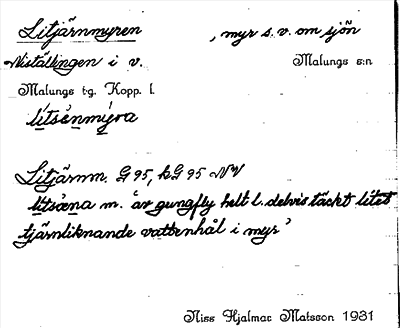 Litjärnmyren , myr s.v. om sjön
Niställingen i v. Malungs s:n
Malungs tg. Kopp. l.
lítsènmýra
Litjärnm. G 95, kG 95 NV
lítsèna m. "är gungfly helt l. delvis täckt litet
tjärnliknande vattenhål i myr"
Niss Hjalmar Matsson 1931